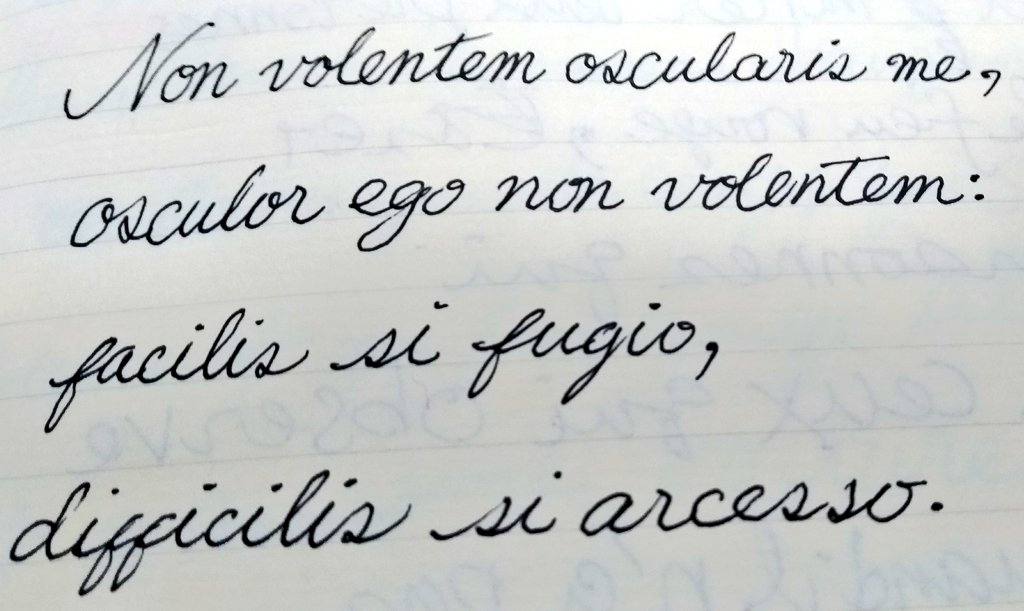 Non volentem oscularis me,
osculor ego non volentem:
facilis si fugio,
difficilis si arcesso.